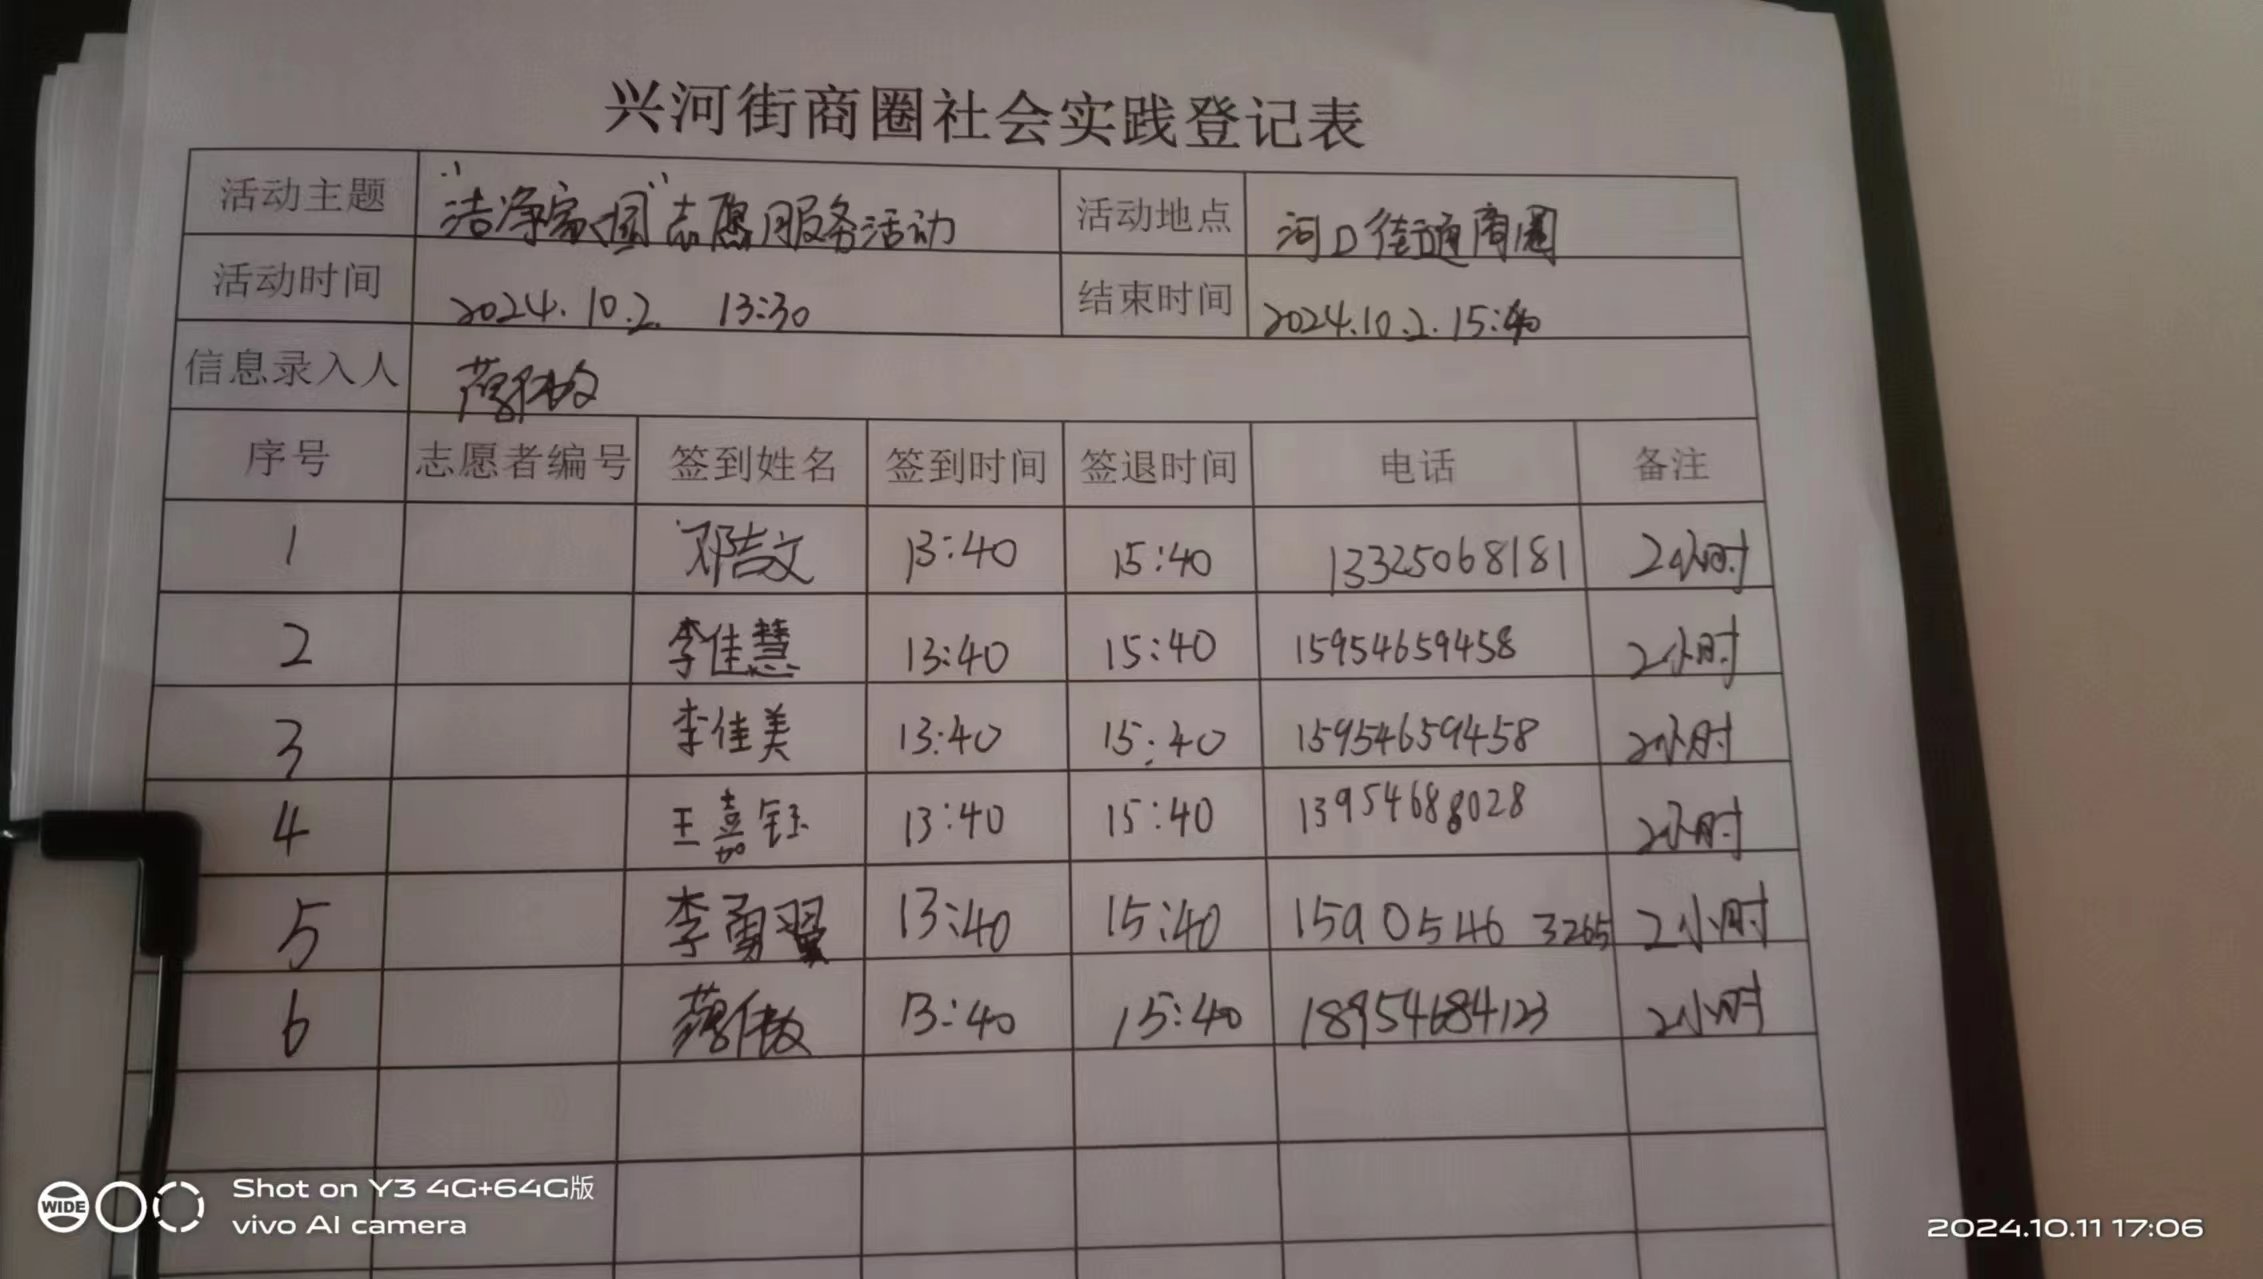 兴河街商圈社会实践登记表
活动主题 "洁净家园"志愿服务活动 活动地点 河口街道商圈
活动时间 2024.10.2. 13:30 结束时间 2024.10.2.15:40
信息录入人
序号 志愿者编号 签到姓名 签到时间 签退时间 电话 备注
1 邓吉文 13:40 15:40 13325068181 2小时
2 李佳慧 13:40 15:40 15954659458 2小时
3 李佳美 13:40 15:40 15954659458 2小时
4 王嘉钰 13:40 15:40 13954688028 2小时
5 李勇翼 13:40 15:40 1590546 3265 2小时
6 13:40 15:40 18954684123 2小时
WIDE
Shot on Y3 4G+64G版
vivo AI camera
2024.10.11 17:06